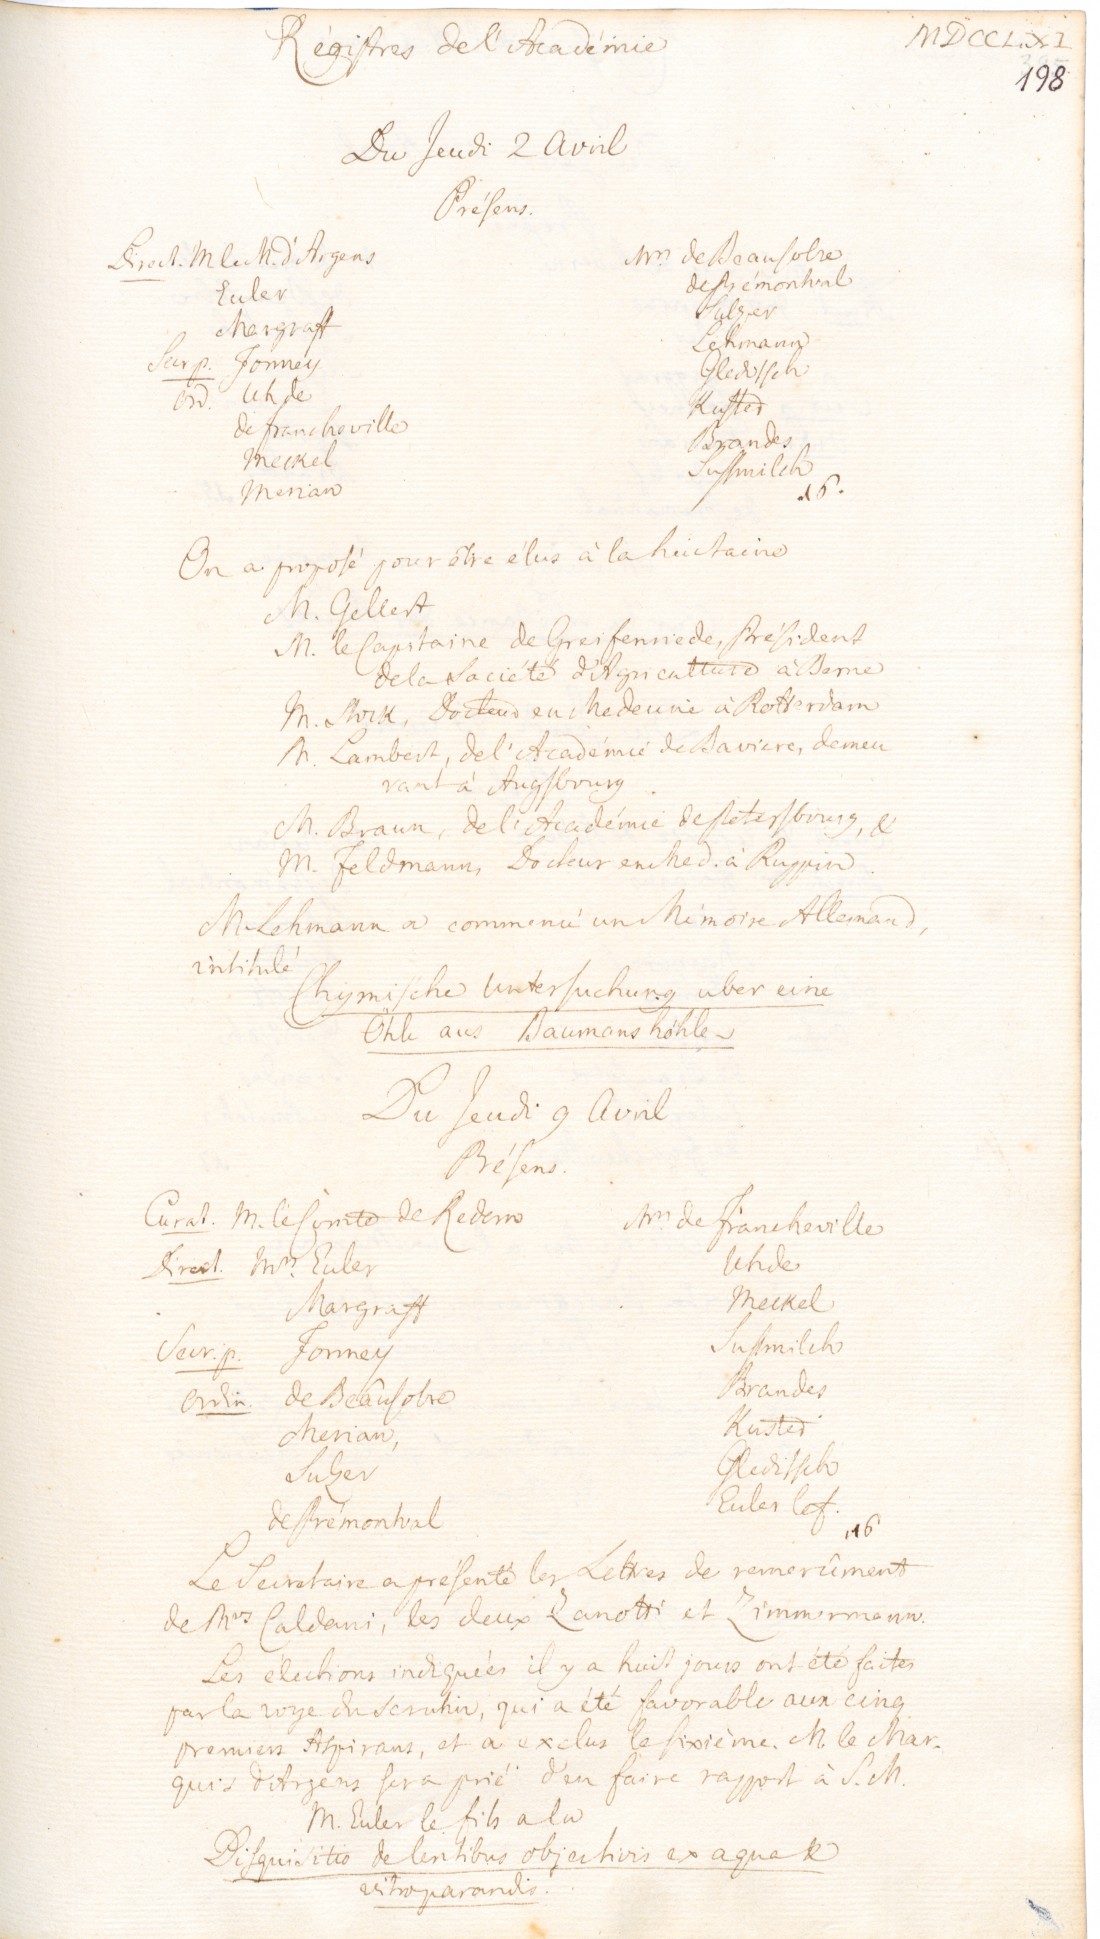 Régistres de l'Académie
MDCCLXI
198
Du Jeudi 2 Avril
Présens.
Direct. M le M. d'Argens
Euler
Margraff
Secr. p. Formey
Ord. Uhde
de Francheville
Meckel
Merian
Mrs de Beausobre
de Prémontval
Sulzer
Lehmann
Gleditsch
Kuster
Brandes
Sussmilch
16.
On a proposé pour être élus à la huictaine
M. Gellert
M. le Capitaine de Greifenriede, Président
de la Société d'Agriculture à Berne
M. Docteur en Medecine à Rotterdam
M. Lambert, de l'Académie de Baviere, demeu
rant à Augsbourg
M. Braun, de l'Académie de Petersbourg, &
M. Feldmann, Docteur en Med. à Ruppin.
M. Lehmann a commencé un Mémoire Allemand,
intitulé
Chymische Untersuchung uber eine
aus Baumanshöhle
Du Jeudi 9 Avril
Présens.
Curat. M. le Comte de Redern
Direct. Mrs. Euler
Margraff
Secr. p. Formey
Ordin. de Beausobre
Merian,
Sulzer
de Prémontval
Mrs de Francheville
Uhde
Meckel
Sussmilch
Brandes
Kuster
Gleditsch
Euler le f.
16
Le Secretaire a présenté les Lettres de remercîment
de Mrs Caldani, les deux Zanotti et Zimmermann.
Les élections indiquées il y a huit jours ont été faites
par la voye du scrutin, qui a été favorable aux cinq
premiers Aspirans, et a exclus le sixième. M. le Mar-
quis d'Argens sera prié d'en faire rapport à S. M.
M. Euler le fils a lu
Disquisitio de lentibus objectivis ex aqua &
vitro parandis.